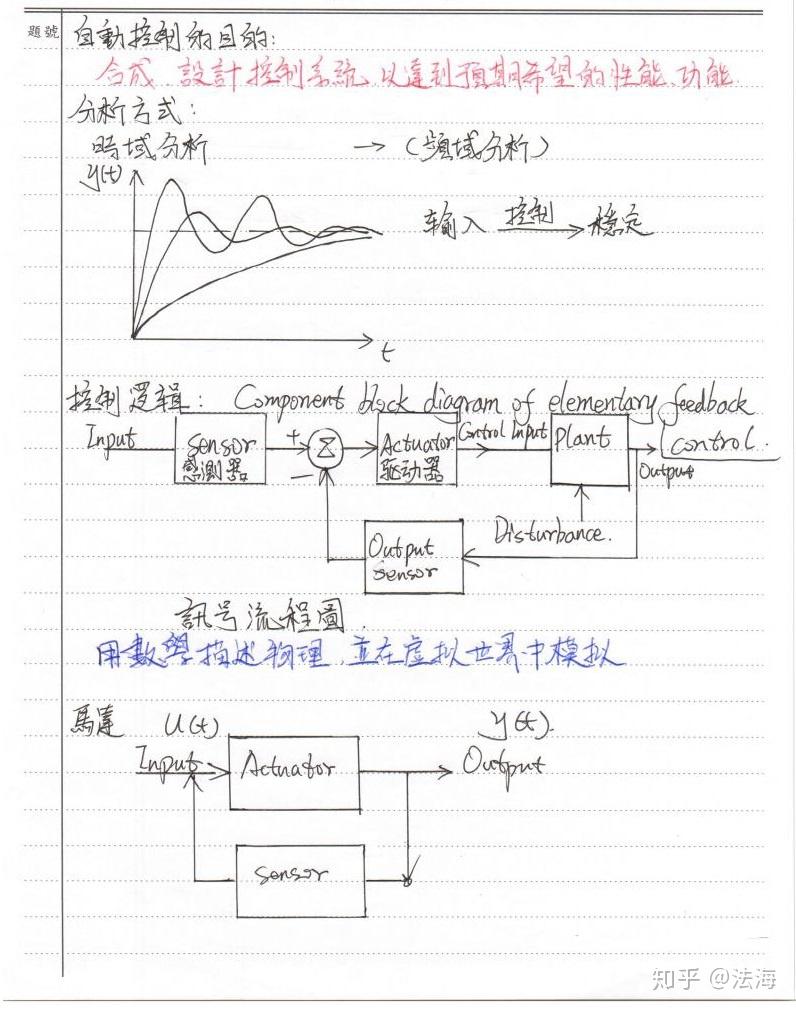 題號
自動控制的目的:
合成、設計控制系統、以達到預期希望的性能、功能
分析方式:
時域分析 → (頻域分析)
y(t)
輸入 控制 → 穩定
t
控制逻辑: Component block diagram of elementary feedback control.
Input Sensor 感測器 + Σ - Actuator 驱动器 Control Input Plant Output
Output Sensor Disturbance.
訊号流程圖
用數學描述物理、並在虚拟世界中模拟
馬達 U(t) y(t).
Input Actuator Output
Sensor
知乎 @法海